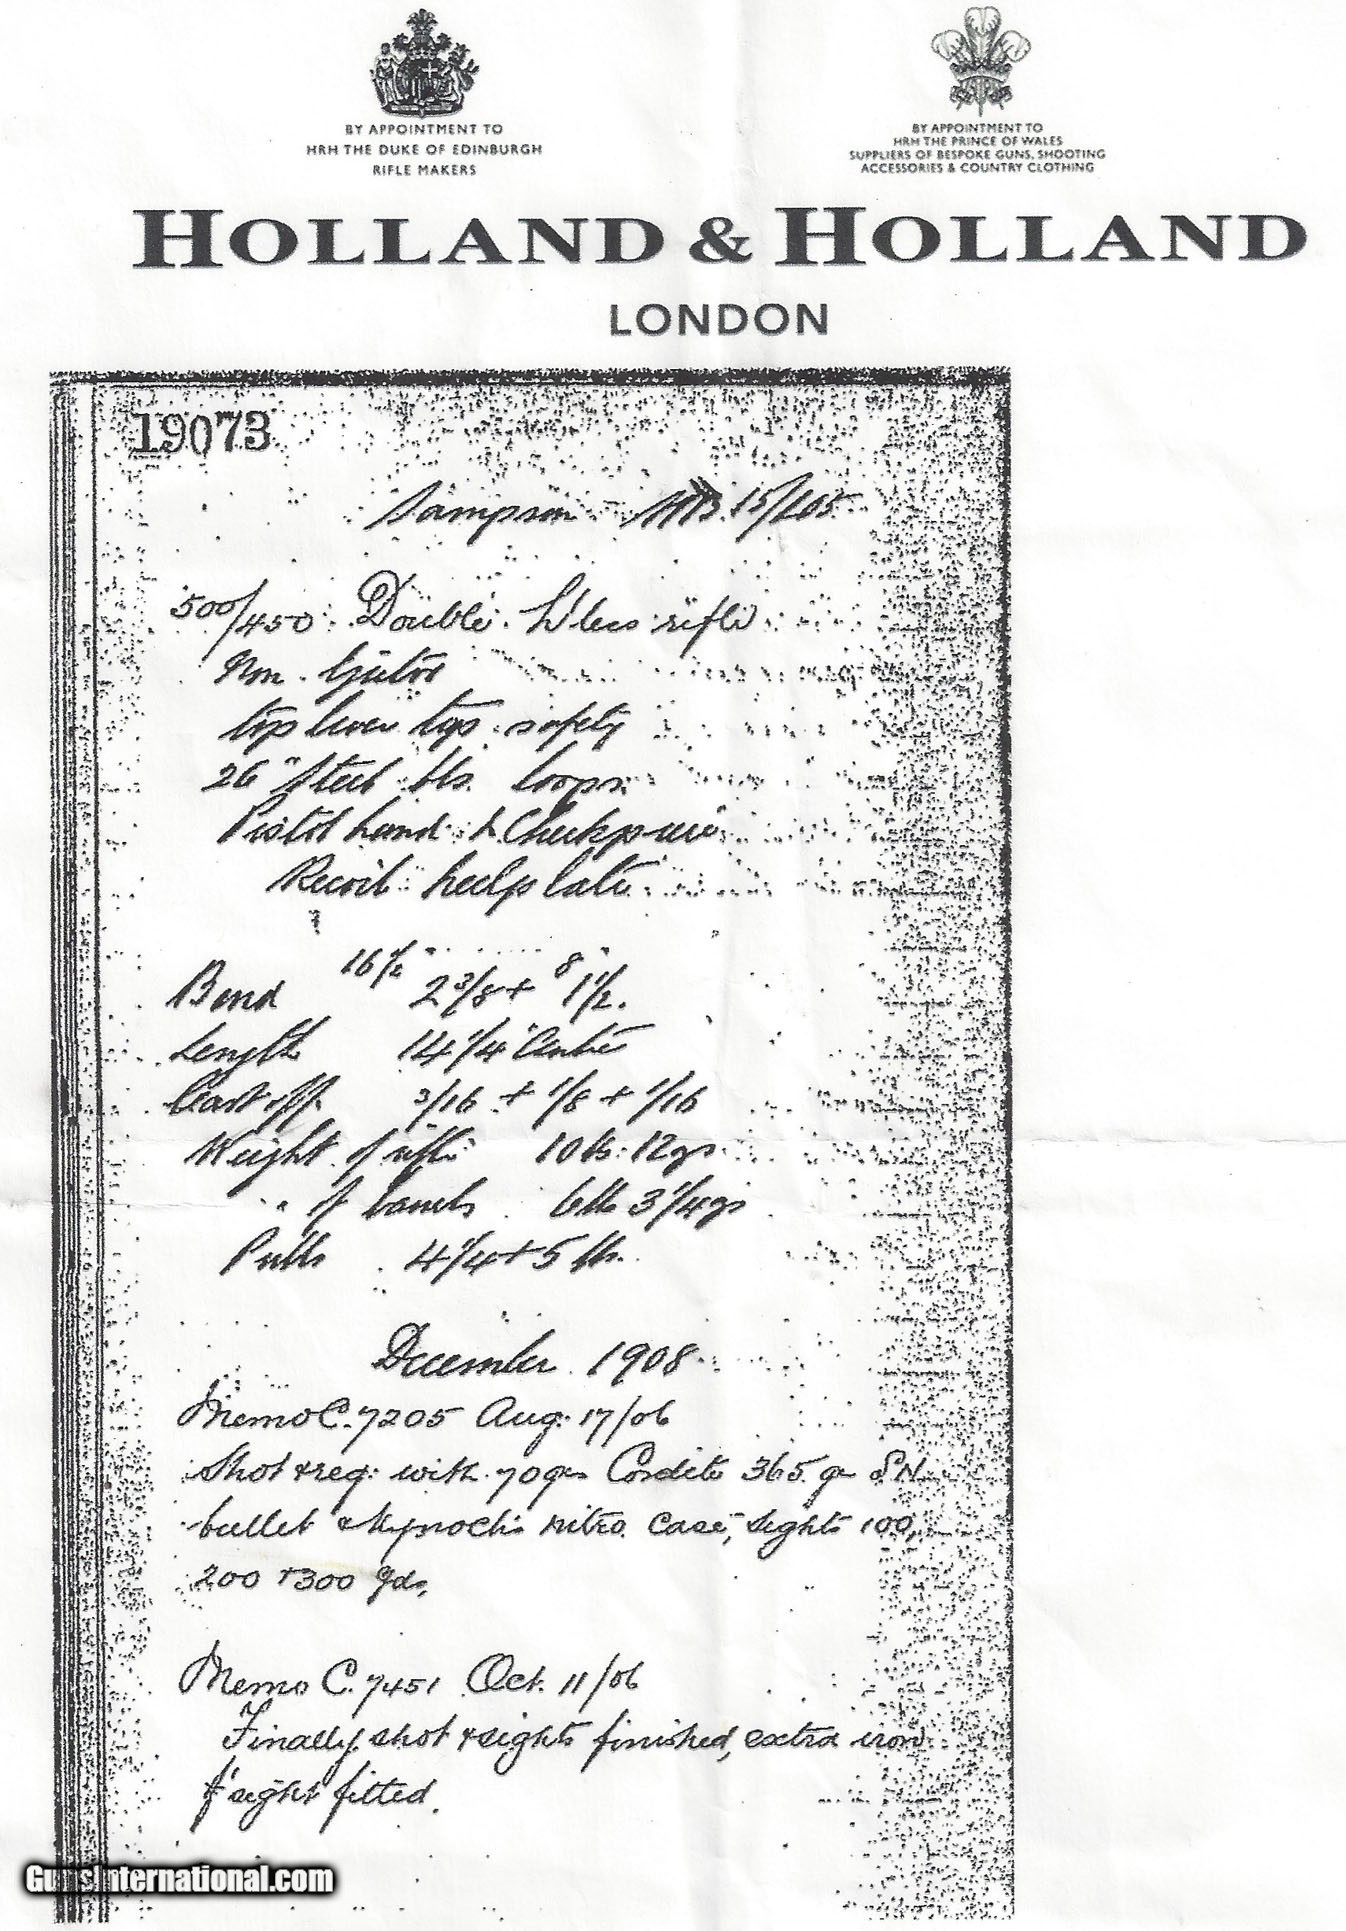 BY APPOINTMENT TO
HRH THE DUKE OF EDINBURGH
RIFLE MAKERS
BY APPOINTMENT TO
HRH THE PRINCE OF WALES
SUPPLIERS OF BESPOKE GUNS, SHOOTING
ACCESSORIES & COUNTRY CLOTHING
HOLLAND & HOLLAND
LONDON
19073
Sampson 15/
500/450 Double H'less rifle
Non Ejector
top lever top safety
26" Steel bls. loops
Pistol hand & Cheekpiece
Recoil heelplate
16 1/2 8
Bend 2 3/8 + 1 1/2.
Length 14 1/4 Centre
Cast off 3/16 + 1/8 + 1/16
Weight of rifle 10 lbs 12 ozs
" of barrels 6 lbs 3 1/4 ozs
Pulls 4 1/4 + 5 lbs.
December 1908
Memo C. 7205 Aug: 17/06
Shot & reg: with 70 grs Cordite 365 gr SN
bullet & Kynoch's nitro case, sights 100,
200 + 300 yds,
Memo C. 7451 Oct. 11/06
Finally shot & sights finished, extra iron
f'sight fitted.
GunsInternational.com